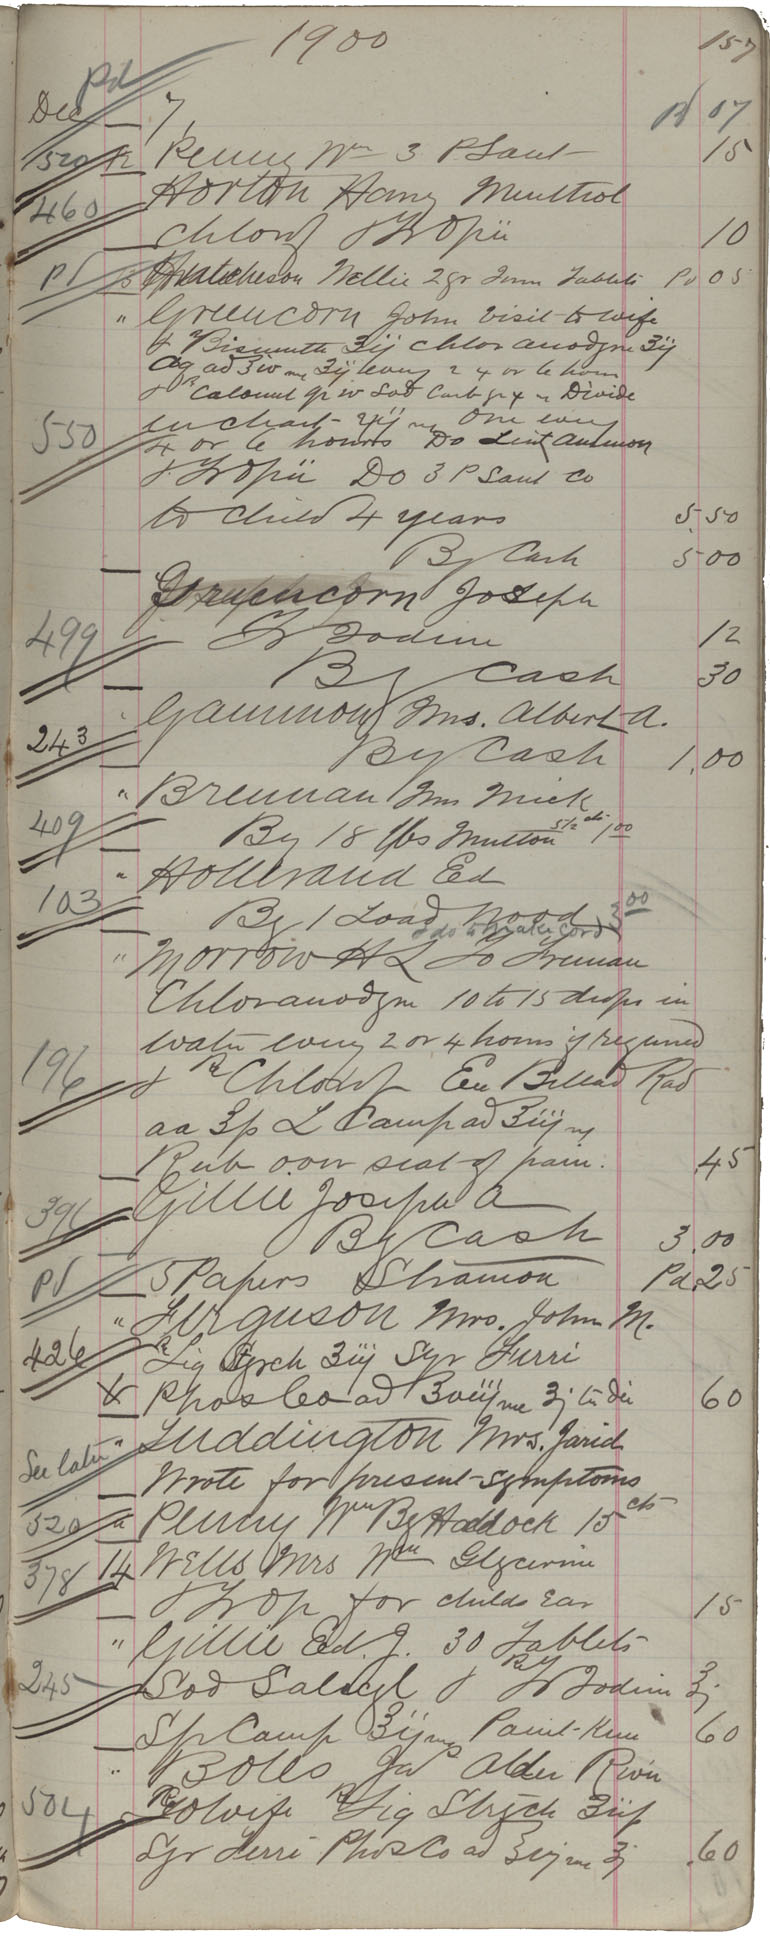 1900 157
pd
Dec 7, Pd 07
520 12 Penny Wm 3 P Sant 15
460 Horton Harry Menthol
Chlorof & Tr Opii 10
pd 13 Hutcheson Nellie 2 gr Tablets Pd 05
" Greencorn John Visit to wife
& Bismuth Ʒij Chloranodyne Ʒij
Aq ad Ʒiv Ʒij every 2 4 or 6 hours
& Calomel gr iv Sod Carb gr x Divide
in chart one every
550 4 or 6 hours Do Lint Ammon
& Tr Opii Do 3 P Sant Co
to child 4 years 5.50
By Cash 5 00
Greencorn Joseph
499 Tr Iodine 12
By Cash 30
Gammon Mrs. Albert A.
243 By Cash 1.00
" Brennan Mrs Mick
409 By 18 lbs Mutton 5½ cts 1 00
" Hollerand Ed
103 By 1 Load Wood 3 00
& do to make cord
" Morrow H L To Freman
Chloranodyne 10 to 15 drops in
water every 2 or 4 hours if required
196 & Chlorof Ext Bellad Rad
aa Ʒss L Camp ad Ʒiij
Rub over seat of pain. 45
396 Gillie Joseph A
By Cash 3.00
pd 5 Papers Stramon Pd .25
" Ferguson Mrs. John M.
426 Liq Strch Ʒij Syr Ferri
Phos Co ad Ʒviij Ʒj 60
See later " Luddington Mrs. Jarid
Wrote for present symptoms
520 " Penny Wm By Haddock 15 cts
378 14 Wells Mrs Wm Glycerine
& Tr Op for childs Ear 15
" Gillie Ed. J. 30 Tablets
245 Sod Salicyl & Tr Iodine Ʒj
Sp Camp Ʒij Paint Knee 60
" Boles Alder River
504 To wife Liq Strych Ʒiij
Syr Ferri Phos Co ad Ʒj .60